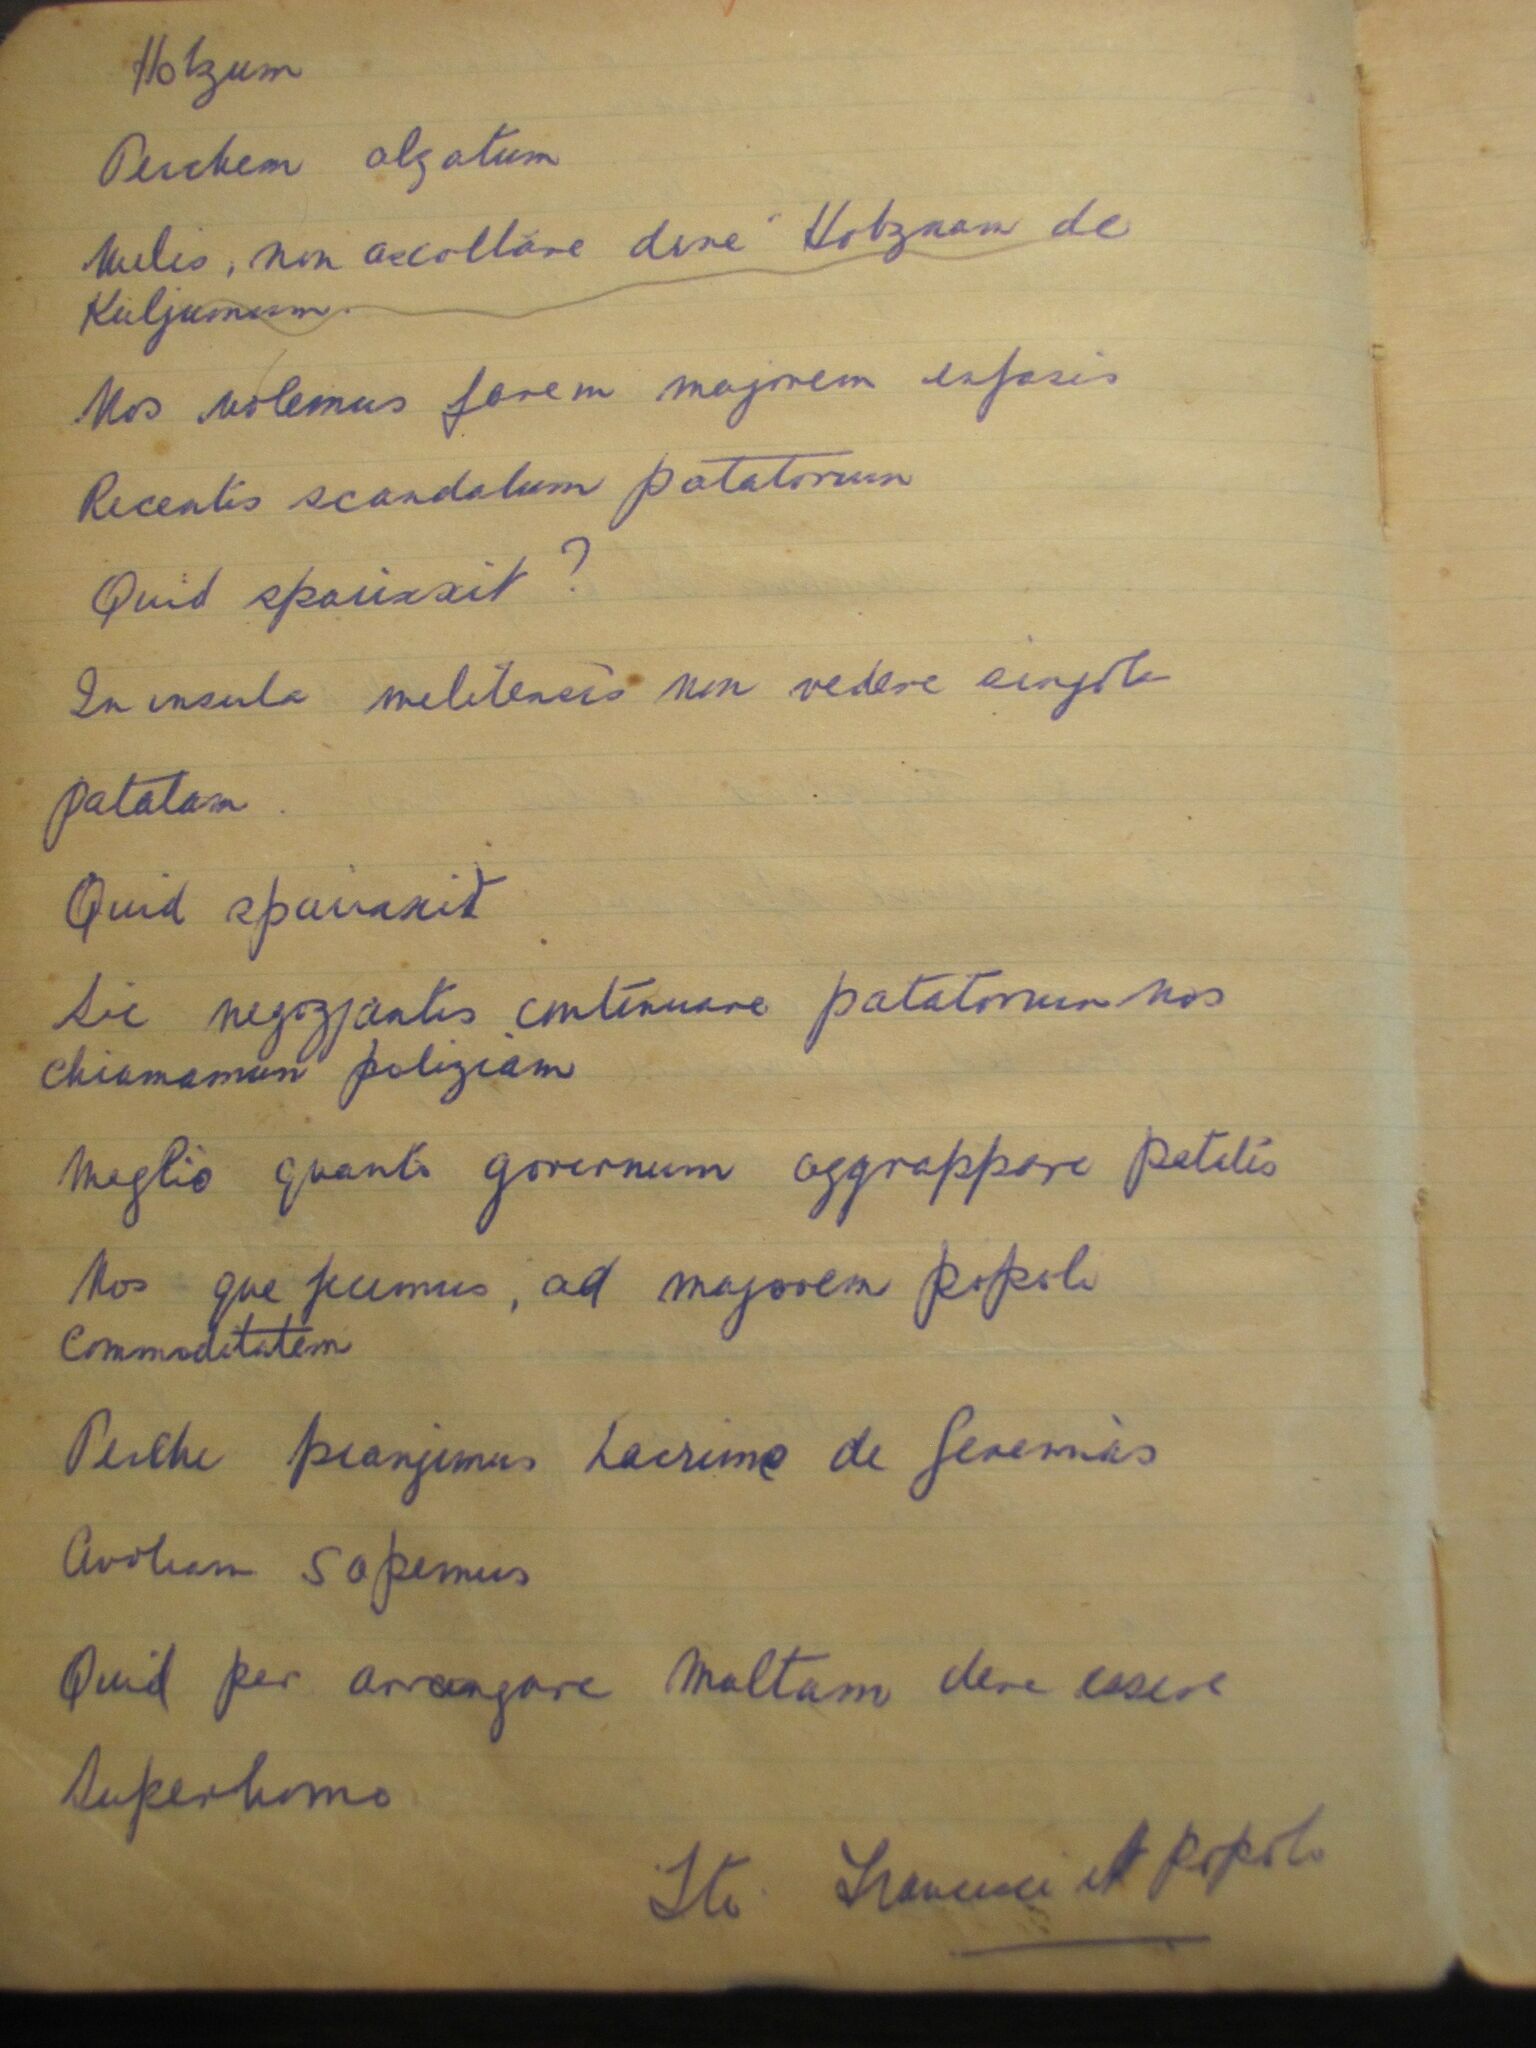 Hobzum
Perchem alzatum
Mulis, non ascoltare dire Hobznam de
Kuljumum.
Nos volemus farem majorem enfasis
Recentis scandalum patatorum
Quid sparixxit?
In insula melitensis non vedere singola
patatam.
Quid sparixxit
Sic negozjantis continuare patatorum nos
chiamamum poliziam
Meglio quanto governum aggrappare patatis
Nos que fecimus, ad majorem popolo
Commoditatem
Perche pianjimus Lacrime de Geremias
Avoliam sapemus
Quid per arrangare Maltam dere essere
Superhomo
Sto Francisci et popolo